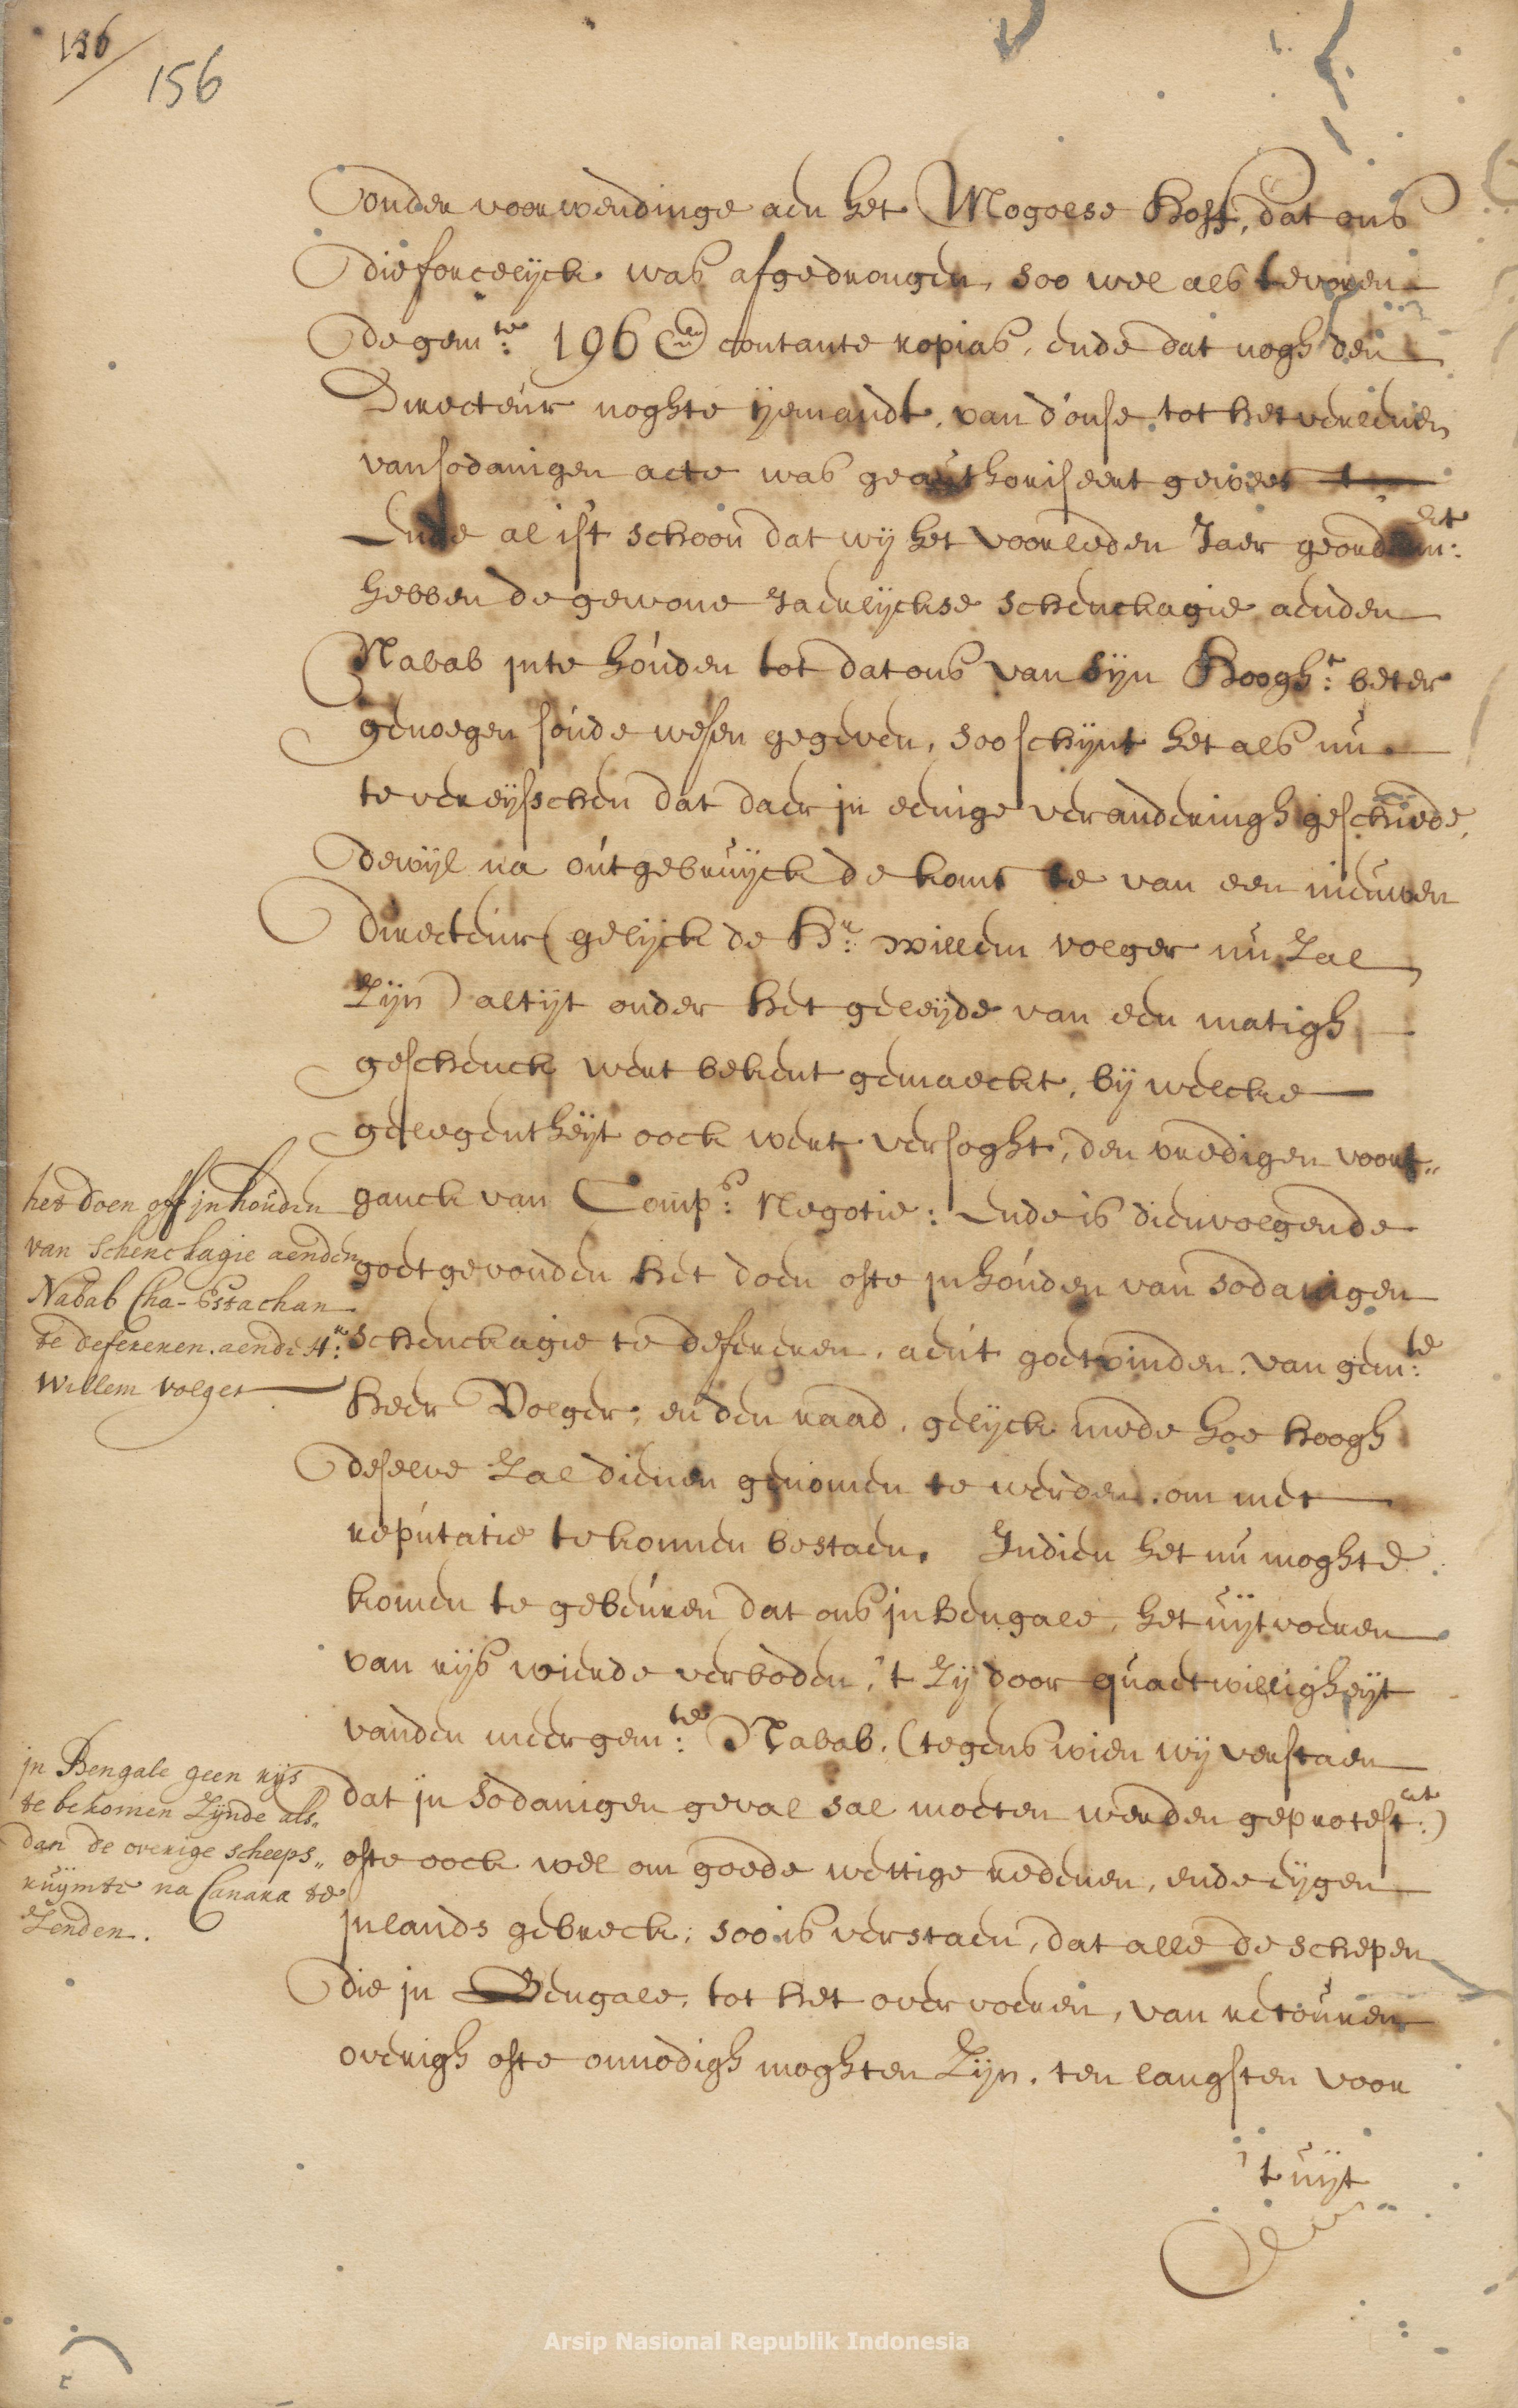 156
156
onder voorwendinge aen het Mogolse hoff, dat ons
die forcelijck was afgedrongen, soo wel als tevoren
de gem:te 196 contante ropias, ende dat nogh den
Directeur noghte ijemandt van d'onse tot het verlenen
van sodanigen acte was geauthoriseert geweest
Ende al ist schoon dat wij het voorleden Jaer geord
hebben de gewone Jaerlijckse schenckagie aenden
Nabab inte houden tot dat ons van sijn Hoogh:t beter
genoegen soude wesen gegeven, soo schijnt het als nu
te vereijsschen dat daer in eenige veranderingh geschiede,
dewijl na out gebruijck de komste van een nieuwen
directeur (gelijck de H:r willem volger nu Zal
Zijn) altijt onder het geleijde van een matigh
geschenck wert bekent gemaeckt, bij welcke
gelegentheijt oock wert versoght, den vredigen voort„
ganck van Comp:s Negotie: Ende is dienvolgende
goetgevonden het doen ofte inhouden van sodanigen
schenckagie te defereren, aen't goetvinden van gem:te
heer Volger, en den raad, gelijck mede hoe hoogh
deselve Zal dienen genomen te werden, om met
reputatie te konnen bestaen. Indien het nu moghte
komen te gebeuren dat ons in bengale, het uijtvoeren
van rijs wierde verboden, 't Zij door quaetwilligheijt
vanden meergem:te Nabab, (tegens wien wij verstaen
dat in sodanigen geval sal moeten werden geprotest:eert)
ofte oock wel om goede wettige redenen, ende eijgen
inlands gebreck; soo is verstaen, dat alle de schepen
die in Bengale, tot het overvoeren, van retouren
overigh ofte onnodigh moghten Zijn, ten langsten voor
't uijt
het doen off in houden
van schenckagie aenden
Nabab Cha-Estachan
te defereren aende H:r
Willem volger
in Bengale geen rijs
te bekomen Zijnde als„
dan de overige scheeps„
ruijmte na Canara te
Zenden.
Arsip Nasional Republik Indonesia